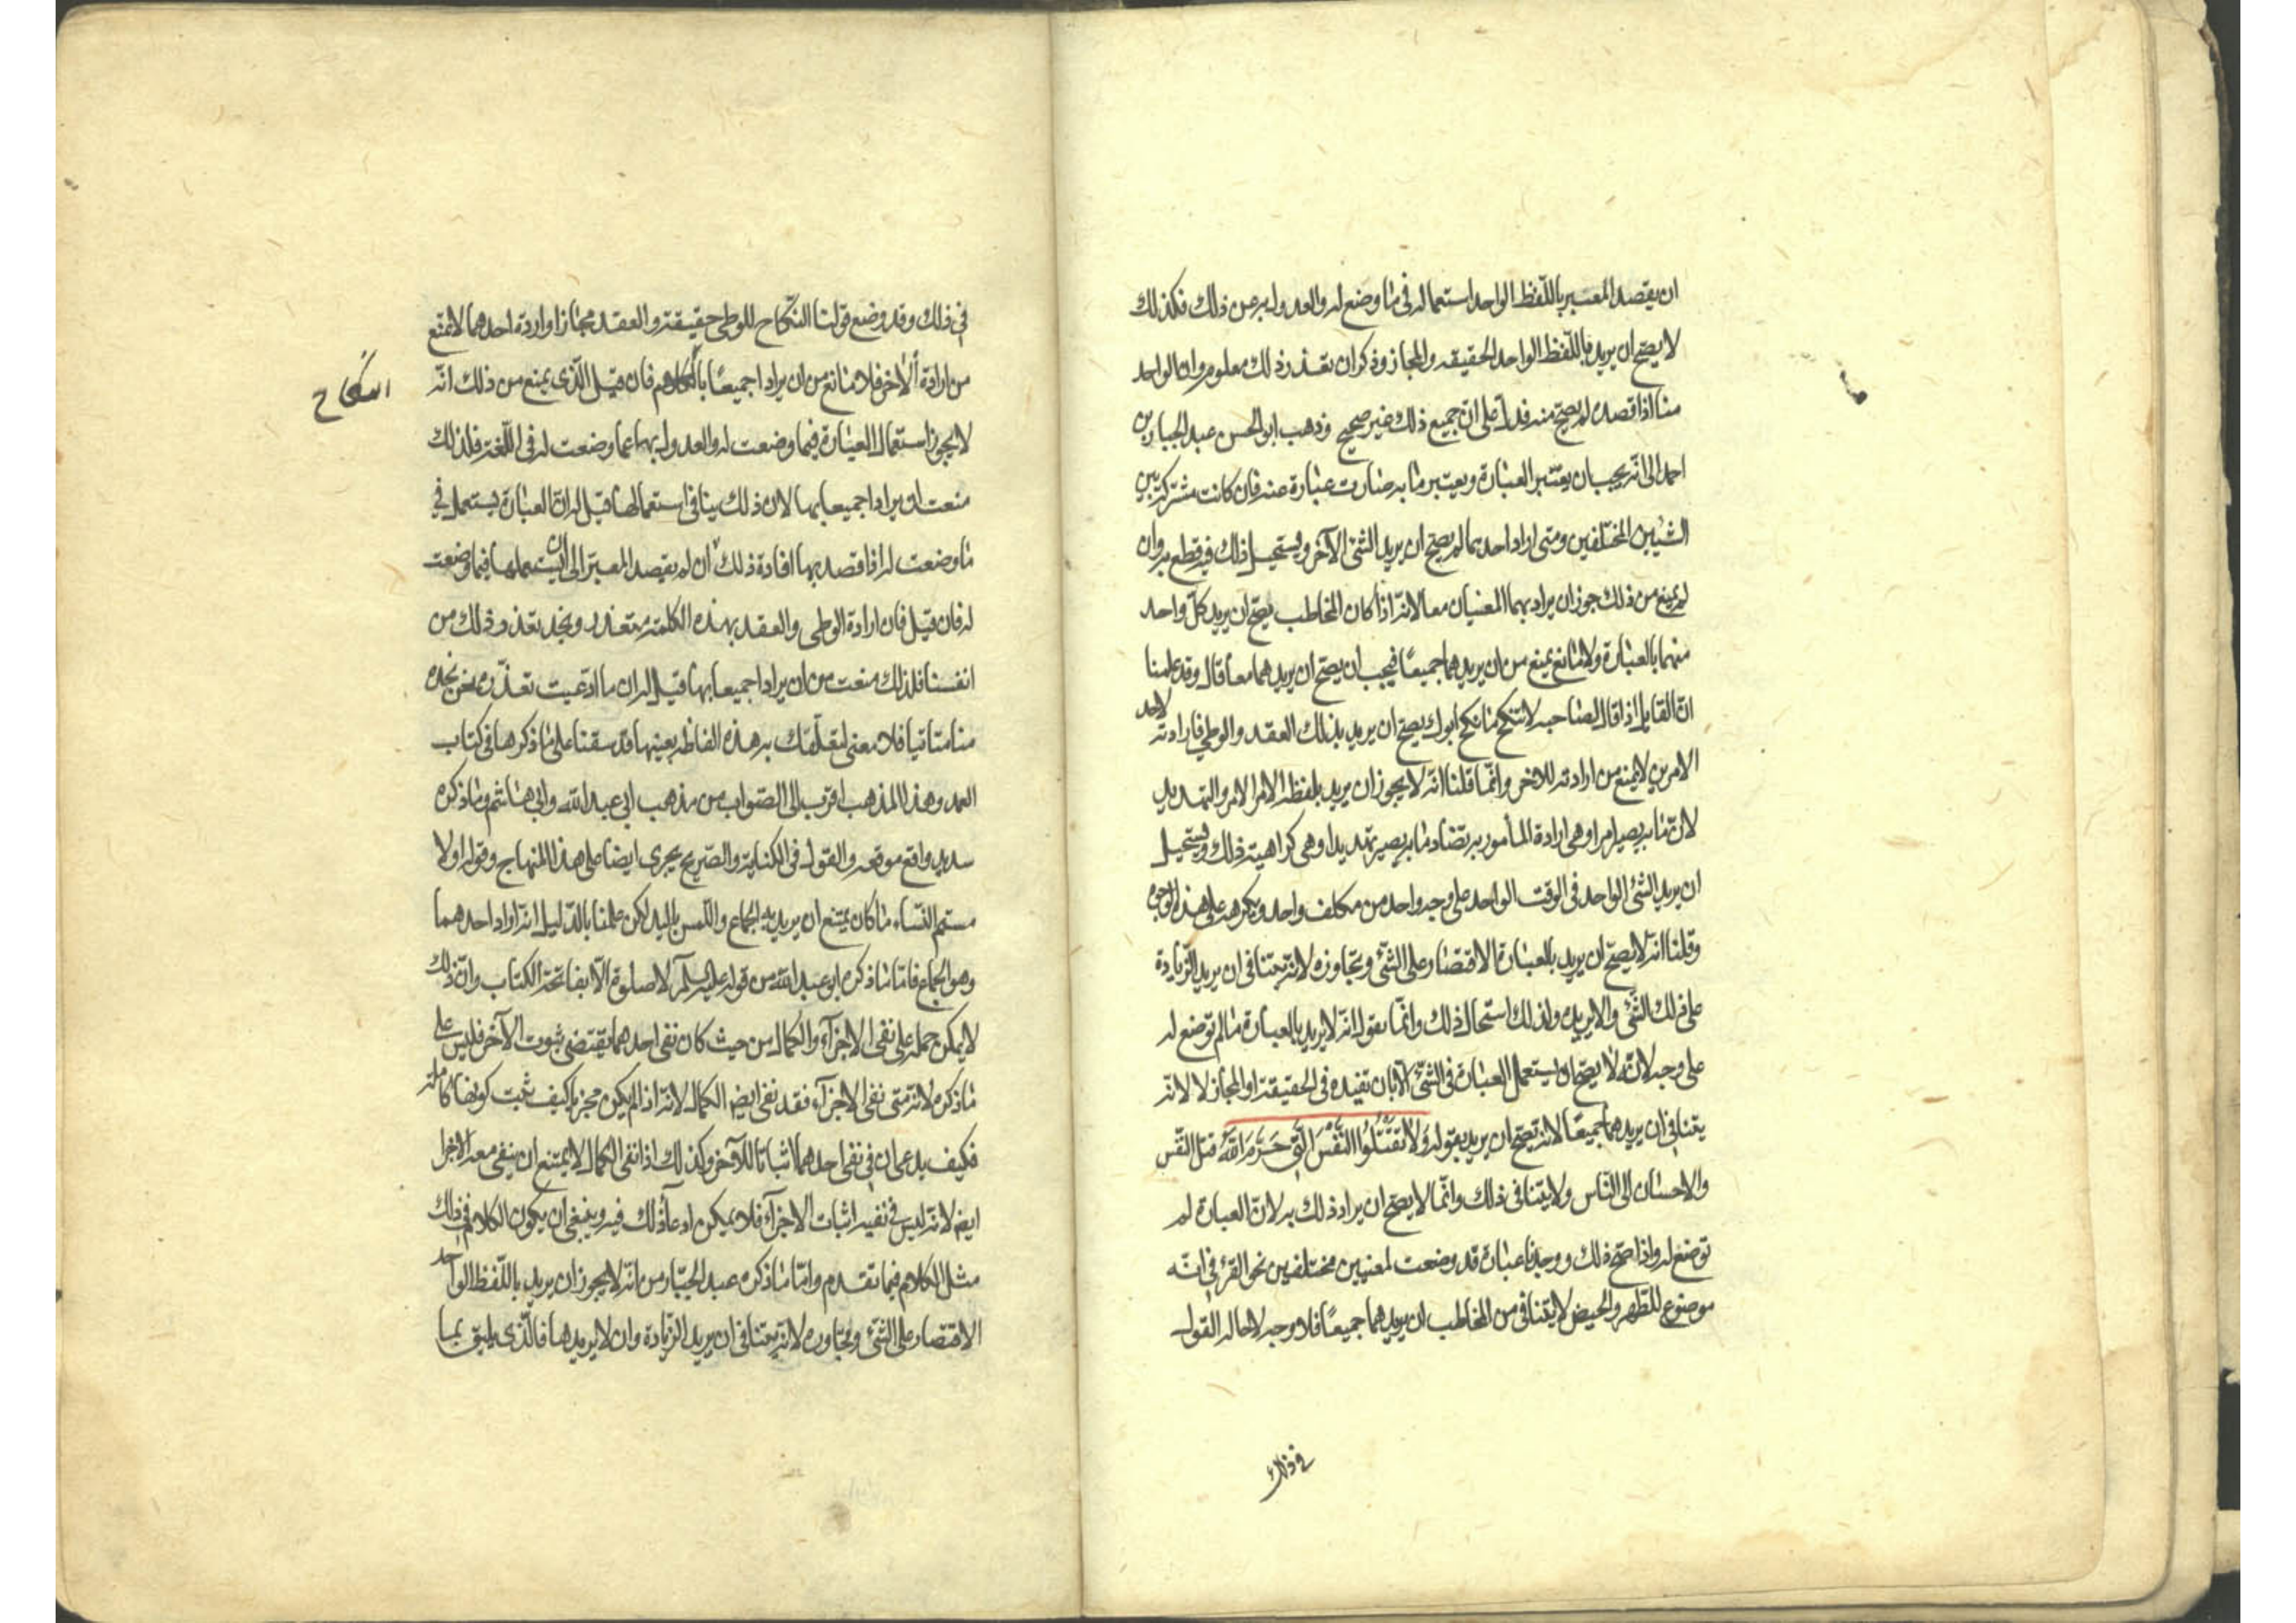 ان يقصد المعبر باللفظ الواحد استعماله فى ما وضع له والعدول به عن ذلك فكذلك
لا يصح ان يريد باللفظ الواحد الحقيقه والمجاز وذكر ان تعذر ذلك معلوم وان الواحد
منا اذا قصده لم يصح منه فدل على ان جميع ذلك غير صحيح وذهب ابو الحسن عبد الجبار بن
احمد الى انه يجب ان يعتبر العبارة ويعتبر ما به صارت عبارة عنه فان كانت مشتركة بين
الشيئين المختلفين ومتى اراد احدهما لم يصح ان يريد الشئ الآخر ويستحيل ذلك فيه قطع به وان
لم يمنع من ذلك جوز ان يراد بهما المعنيان معا لانه اذا كان المخاطب يصح ان يريد كل واحد
منهما بالعبارة ولا مانع يمنع من ان يريدهما جميعًا فيجب ان يصح ان يريدهما معا قال وقد علمنا
ان القايل اذا قال لصاحبه لا تنكح ما نكح ابوك يصح ان يريد بذلك العقد والوطي فارادته لاحد
الامرين لا يمنع من ارادته للاخر وانما قلنا انه لا يجوز ان يريد بلفظة الامر الامر والتهديد
لان ما به يصير امرا وهى ارادة المأمور به تضاد ما به يصير تهديدا وهى كراهية ذلك ويستحيل
ان يريد الشئ الواحد فى الوقت الواحد على وجه واحد من مكلف واحد ويكرهه على هذا الوجه
وقلنا انه لا يصح ان يريد بالعبارة الاقتصار على الشئ وتجاوزه لانه يتنافى ان يريد الزيادة
على ذلك الشئ والا يريده ولذلك استحال ذلك وانما نقول انه لا يريد بالعبارة ما لم توضع له
على وجه لانه لا يصح ان يستعمل العبارة فى الشئ الا بان تفيده فى الحقيقة او المجاز لا لانه
يتنافى ان يريدهما جميعًا لانه يصح ان يريد بقوله وَلا تَقْتُلُوا النَّفْسَ الَّتِى حَرَّمَ اللّهُ قتل النفس
والاحسان الى الناس ولا يتنافى ذلك وانما لا يصح ان يراد ذلك به لان العبارة لم
توضع له واذا صح ذلك ووجدنا عبارة قد وضعت لمعنيين مختلفين نحو القرء فى انه
موضوع للطهر والحيض لا يتنافى من المخاطب ان يريدهما جميعًا فلا وجه لاحالة القول
فى ذلك
فى ذلك وقد وضع قولنا النكاح للوطى حقيقة و العقد مجازا وارادة احدهما لا تمنع
من ارادة الآخر فلا مانع من ان يرادا جميعًا بالكلام فان قيل الذى يمنع من ذلك انه
النكاح
لا يجوز استعمال العبارة فيما وضعت له والعدول بها عما وضعت له فى اللغة فلذلك
منعت ان يرادا جميعا بها لان ذلك ينافى استعمالها قيل له ان العبارة يستعمل فى
ما وضعت له اذا قصد بها افادة ذلك ان لم يقصد المعبر الى ان يستعملها فيما وضعت
له فان قيل فان ارادة الوطى والعقد بهذه الكلمة متعذر ونجد تعذر ذلك من
انفسنا فلذلك منعت من ان يرادا جميعا بها قيل له ان ما ادعيت تعذره نحن نجده
منا متاتيا فلا معنى لتعلقك به هذه الفاظه بعينها قد سقنا على ما ذكرها فى كتاب
العمد وهذا المذهب اقرب الى الصواب من مذهب ابى عبد الله وابى هاشم وما ذكره
سديد واقع موقعه والقول فى الكناية والصريح يجرى ايضا على هذا المنهاج وقوله او لا
مستم النساء ما كان يمتنع ان يريد به الجماع واللمس باليد لكن علمنا بالدليل انه اراد احدهما
وهو الجماع فاما ما ذكره ابو عبد الله من قوله عليه السلم لا صلوة الا بفاتحة الكتاب وان ذلك
لا يمكن حمله على نفى الاجزآء والكمال من حيث كان نفى احدهما يقتضى ثبوت الآخر فليس على
ما ذكره لانه متى نفى الاجزآء فقد نفى ايضا الكمال لانه اذا لم يكن مجزيا كيف يثبت كونها كاملة
فكيف يدعى ان فى نفى احدهما اثباتا للآخر وكذلك اذا نفى الكمال لا يمتنع ان ينفى معه الاجزا
ايضا لانه ليس فى نفيه اثبات الاجزآء فلا يمكن ادعآء ذلك فيه وينبغى ان يكون الكلام فى ذلك
مثل الكلام فيما تقدم واما ما ذكره عبد الجبار من انه لا يجوز ان يريد باللفظ الواحد
الاقتصار على الشئ وتجاوزه لانه يتنافى ان يريد الزيادة وان لا يريدها فالذى يليق بما